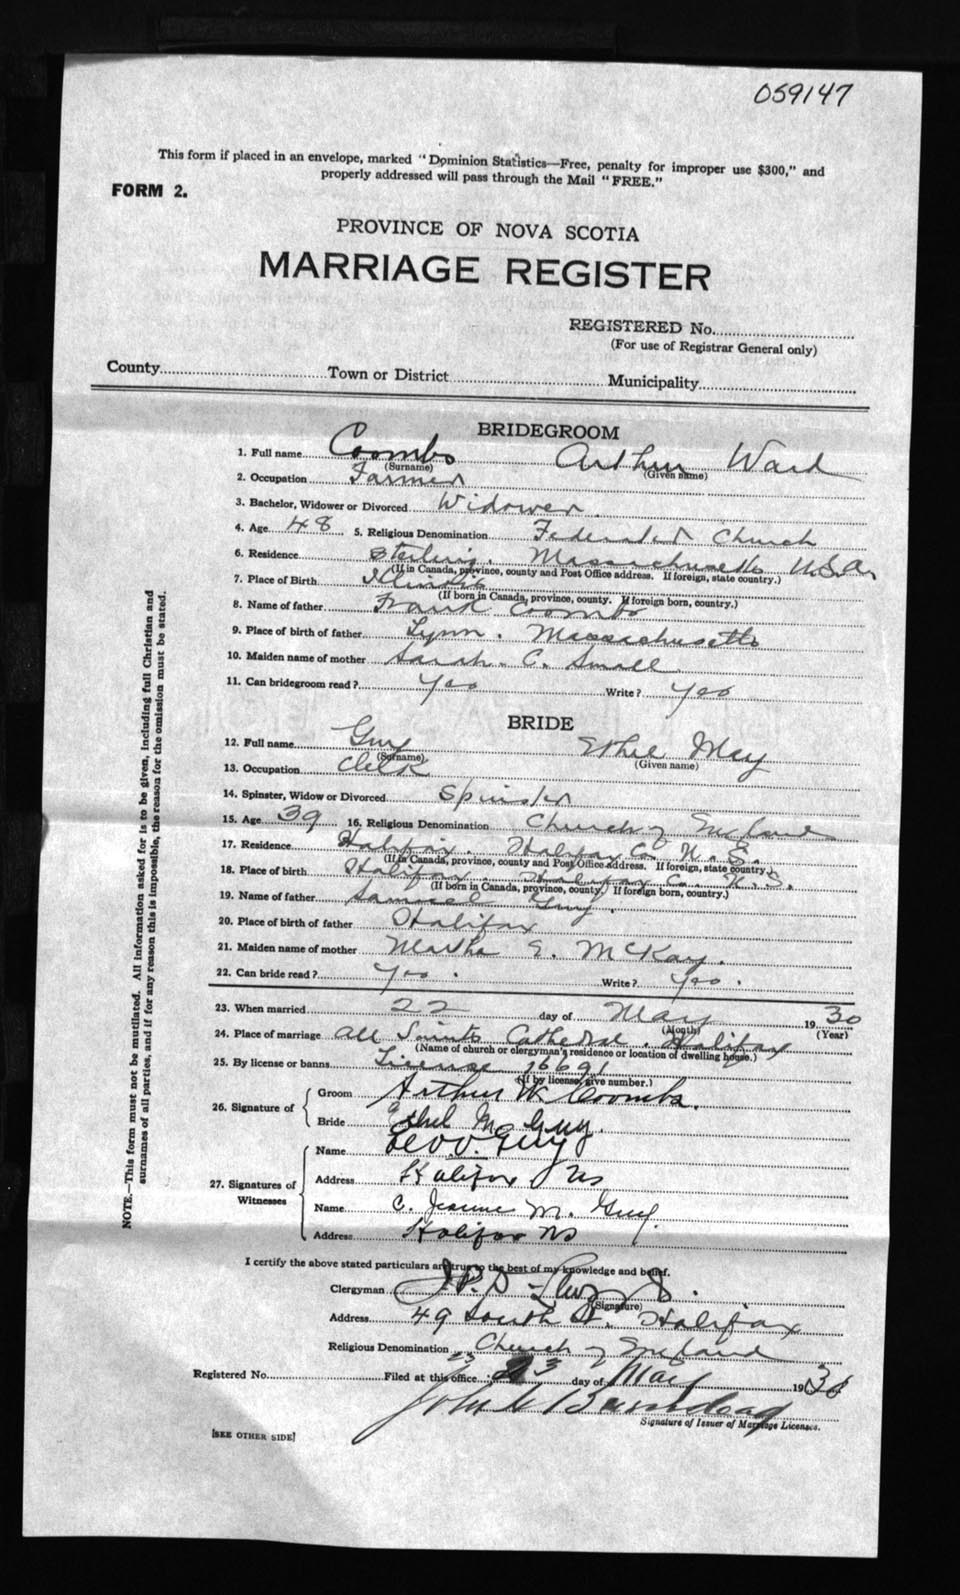 059147
This form if placed in an envelope, marked "Dominion Statistics—Free, penalty for improper use $300," and
properly addressed will pass through the Mail "FREE."
FORM 2.
PROVINCE OF NOVA SCOTIA
MARRIAGE REGISTER
REGISTERED No.
(For use of Registrar General only)
County Town or District Municipality
BRIDEGROOM
1. Full name Coombs Arthur Ward
(Surname) (Given name)
2. Occupation Farmer
3. Bachelor, Widower or Divorced Widower
4. Age 48 5. Religious Denomination Federated Church
6. Residence Sterling, Massachusetts U.S.A.
(If in Canada, province, county and Post Office address. If foreign, state country.)
7. Place of Birth Illinois
(If born in Canada, province, county. If foreign born, country.)
8. Name of father Frank Coombs
9. Place of birth of father Lynn, Massachusetts
10. Maiden name of mother Sarah. C. Small
11. Can bridegroom read? Yes Write? Yes
BRIDE
12. Full name Guy Ethel May
(Surname) (Given name)
13. Occupation Clerk
14. Spinster, Widow or Divorced Spinster
15. Age 39 16. Religious Denomination Church of England
17. Residence Halifax. Halifax Co. N.S.
(If in Canada, province, county and Post Office address. If foreign, state country.)
18. Place of birth Halifax. Halifax Co. N.S.
(If born in Canada, province, county. If foreign born, country.)
19. Name of father Samuel Guy.
20. Place of birth of father Halifax
21. Maiden name of mother Martha E. McKay.
22. Can bride read? Yes. Write? Yes.
23. When married 22 day of May 1930
(Month) (Year)
24. Place of marriage All Saints Cathedral. Halifax
(Name of church or clergyman's residence or location of dwelling house.)
25. By license or banns License 16691
(If by license, give number.)
26. Signature of
Groom Arthur W. Coombs.
Bride Ethel M. Guy.
27. Signatures of Witnesses
Name Guy
Address Halifax NS
Name C. Jeanne M. Guy.
Address Halifax NS
I certify the above stated particulars are true to the best of my knowledge and belief.
Clergyman
(Signature)
Address 49 South St. Halifax
Religious Denomination Church of England
23
Registered No. Filed at this office 23 day of May 1930
John
Signature of Issuer of Marriage Licenses.
[SEE OTHER SIDE]
NOTE.—This form must not be mutilated. All information asked for is to be given, including full Christian and
surnames of all parties, and if for any reason this is impossible, the reason for the omission must be stated.